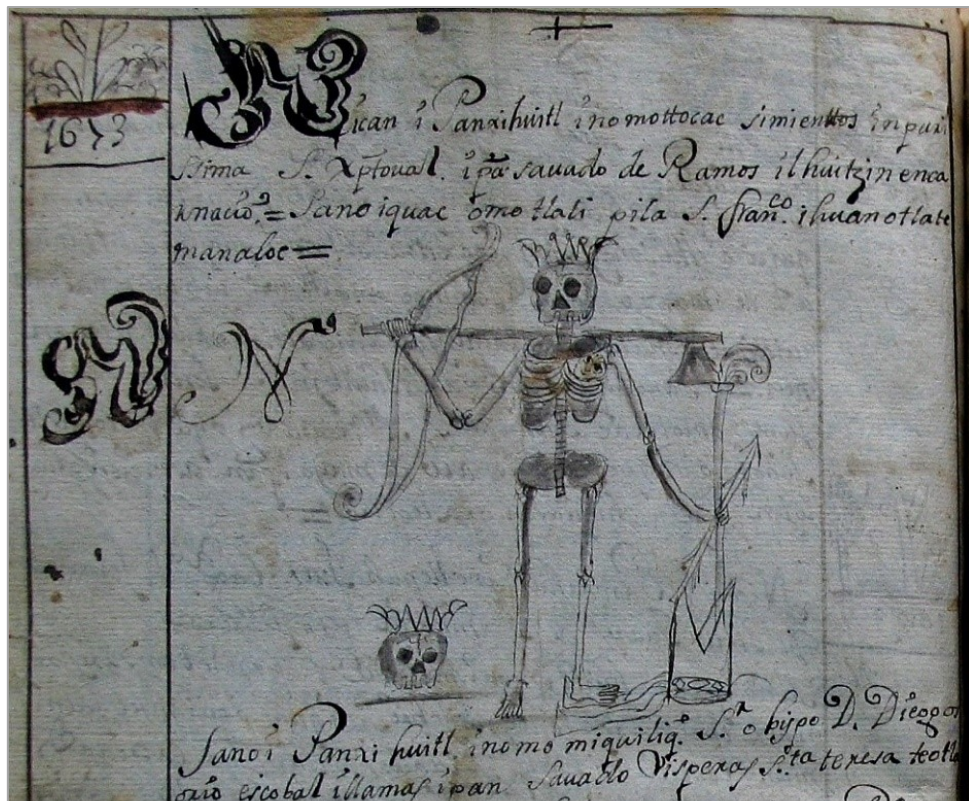 1673
Nican i Panxihuitl inomottocac simienttos inpuri
ssima S. Xptoval. ipa savado de Ramos ilhuitzin enca
knacio = Sano iquac omotlali pila S. fran.co ihuan otlate
manaloc =
Sano i Panxihuitl. inomo miquiliq. S.r obispo D. Diego
orio escobal illamas ipan savado Visperas S.ta teresa teotl